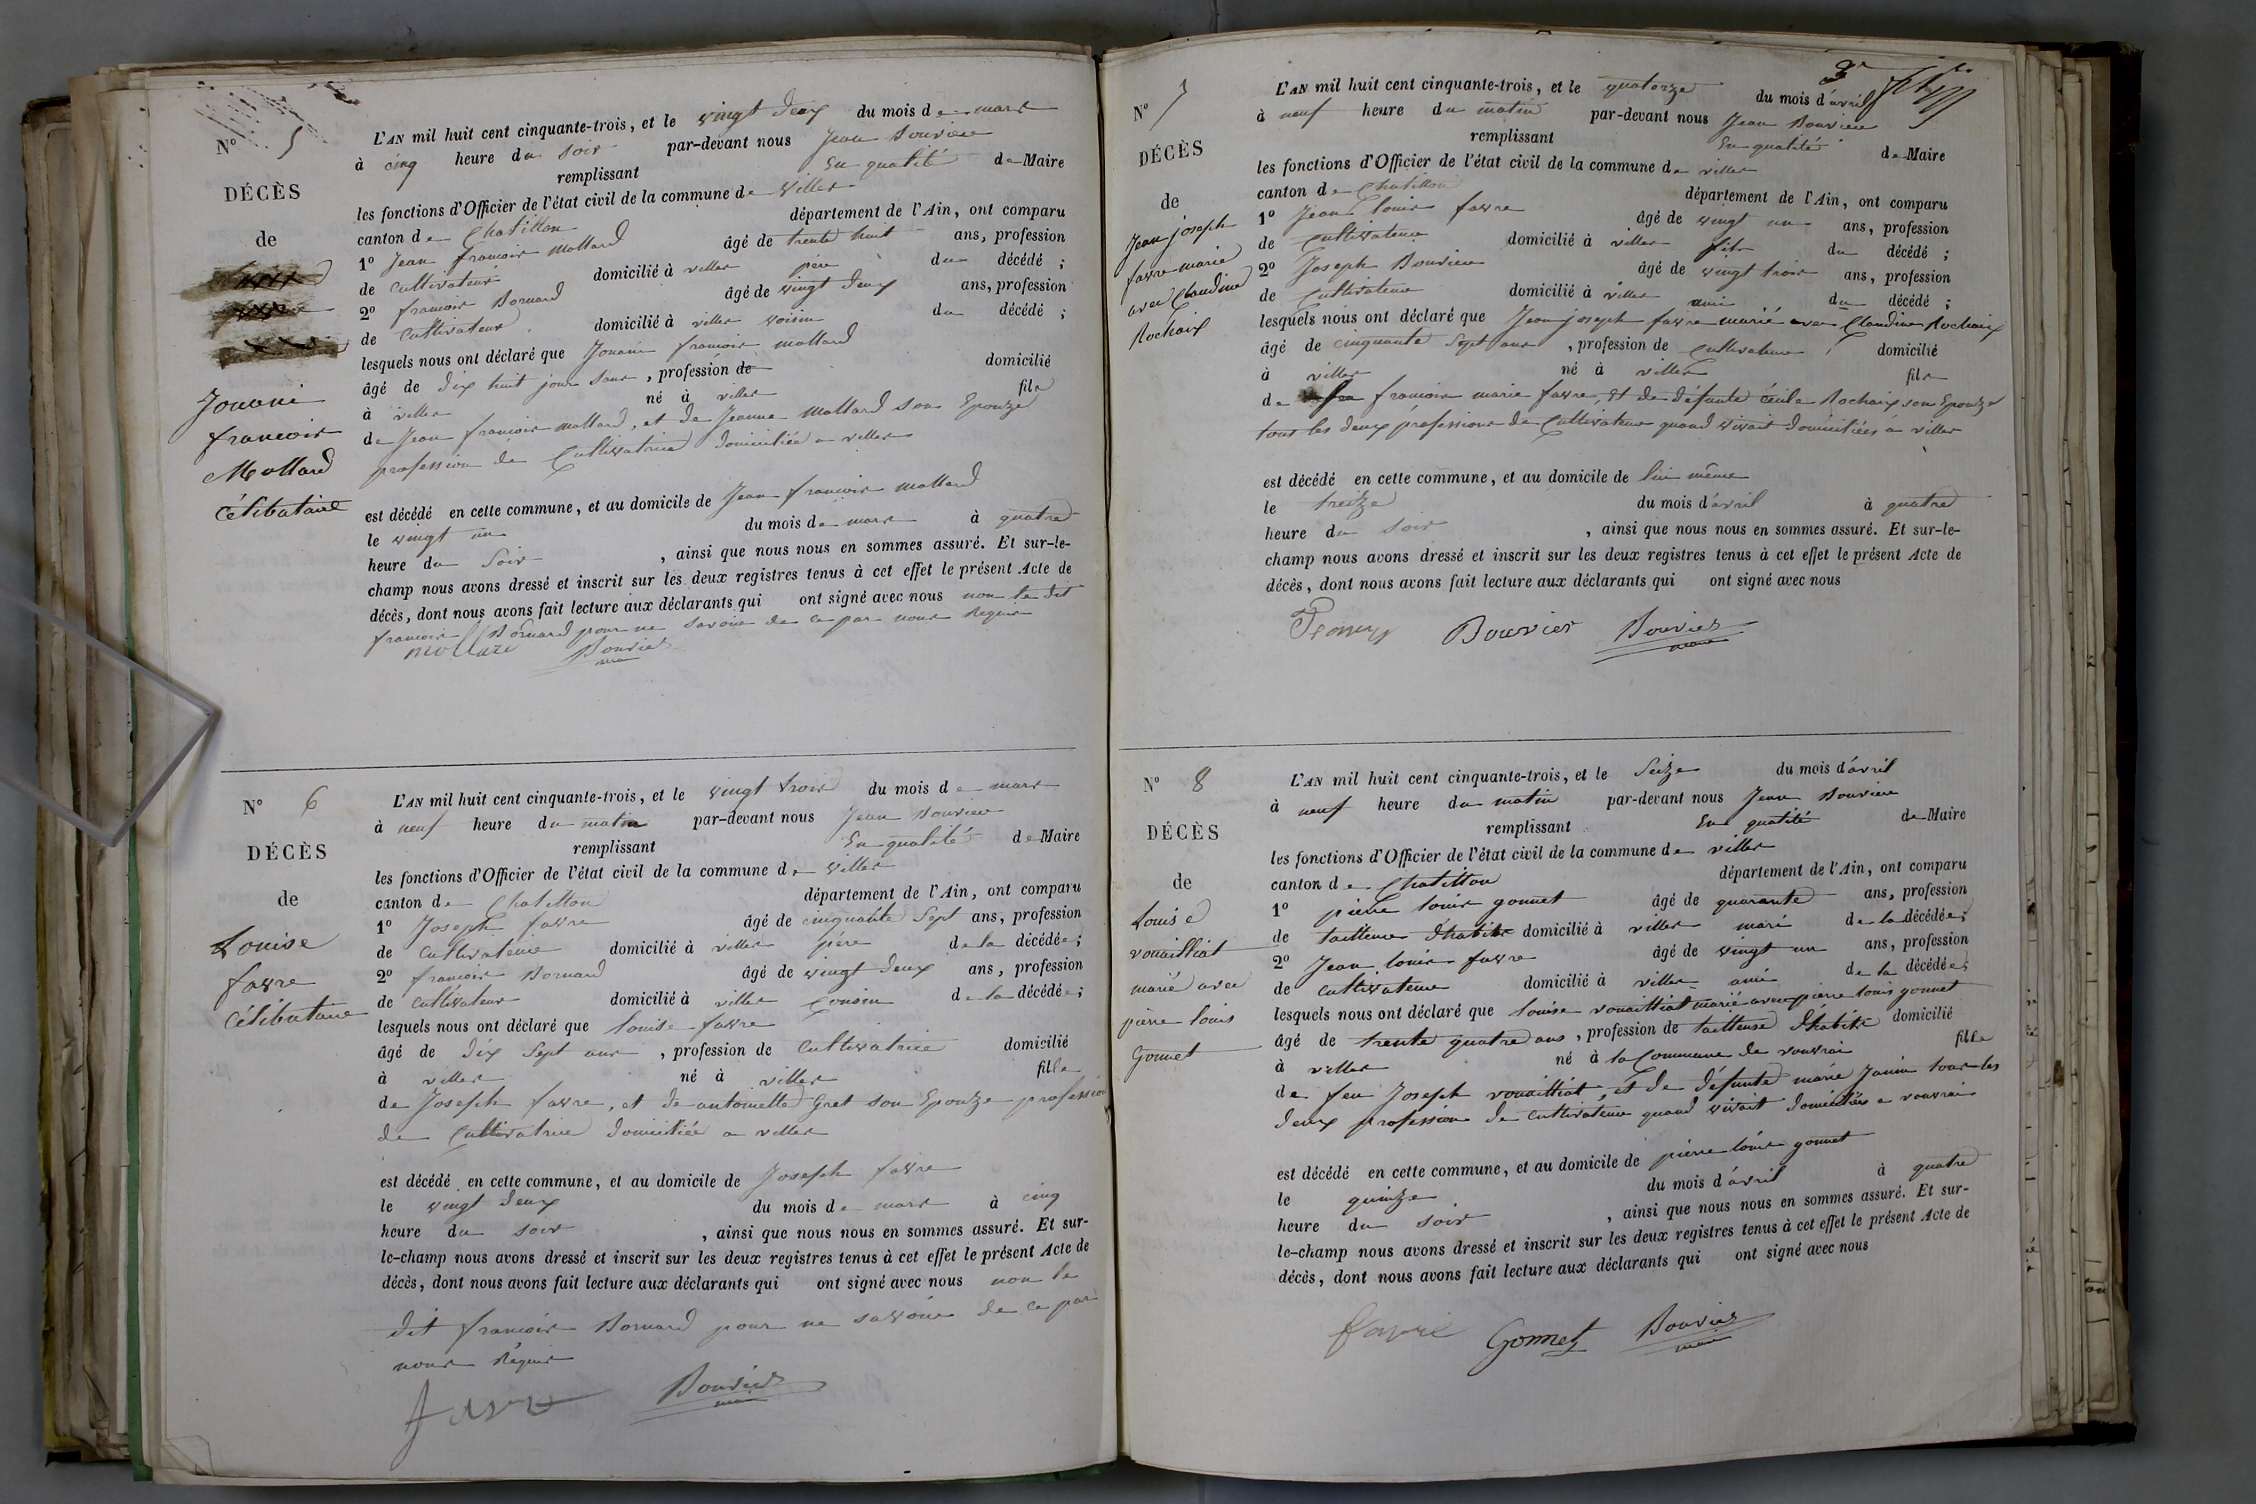 N° 5
DÉCÈS
de
Jouani
francoir
Mollard
Célibataire
L'AN mil huit cent cinquante-trois, et le vingt deux du mois de mars
à cinq heure du soir par-devant nous Jean Bouvier
remplissant En qualité de Maire
les fonctions d'Officier de l'état civil de la commune de Viller
canton de Chatillon département de l'Ain, ont comparu
1° Jean francoir mollard âgé de trente huit ans, profession
de Cultivateur domicilié à viller père du décédé ;
2° francoir Bornard âgé de vingt deux ans, profession
de Cultivateur domicilié à viller voisin du décédé ;
lesquels nous ont déclaré que Jouani francoir mollard
âgé de dix huit jour sans, profession de domicilié
à viller né à viller fils
de Jean francoir mollard, et de Jeanne Mollard son Epouze
profession de Cultivatrice domiciliée a viller
est décédé en cette commune, et au domicile de Jean francoir mollard
le vingt un du mois de mars à quatre
heure du Soir, ainsi que nous nous en sommes assuré. Et sur-le-
champ nous avons dressé et inscrit sur les deux registres tenus à cet effet le présent Acte de
décès, dont nous avons fait lecture aux déclarants qui ont signé avec nous non le dit
francoir Bornard pour ne savoir de ce par nous Requir
mollard Bouvier
N° 6
DÉCÈS
de
Louise
favre
Célibataire
L'AN mil huit cent cinquante-trois, et le vingt trois du mois de mars
à neuf heure du matin par-devant nous Jean Bouvier
remplissant En qualité de Maire
les fonctions d'Officier de l'état civil de la commune de viller
canton de Chatillon département de l'Ain, ont comparu
1° Joseph favre âgé de cinquante Sept ans, profession
de Cultivateur domicilié à viller père de la décédée ;
2° francoir Bornard âgé de vingt deux ans, profession
de Cultivateur domicilié à viller Cousin de la décédée ;
lesquels nous ont déclaré que louise favre
âgé de dix Sept ans, profession de Cultivatrice domicilié
à viller né à viller fille
de Joseph favre, et de antoinette Gret son Epouze profession
de Cultivatrice domiciliée a viller
est décédé en cette commune, et au domicile de Joseph favre
le vingt deux du mois de mars à cinq
heure du soir, ainsi que nous nous en sommes assuré. Et sur-
le-champ nous avons dressé et inscrit sur les deux registres tenus à cet effet le présent Acte de
décès, dont nous avons fait lecture aux déclarants qui ont signé avec nous non le
dit francoir Bornard pour ne savoir de ce par
nous Réquir
favre Bouvier
N° 7
DÉCÈS
de
Jean joseph
favre marié
avec Claudine
Rochaix
L'AN mil huit cent cinquante-trois, et le quatorze du mois d'avril
à neuf heure du matin par-devant nous Jean Bouvier
remplissant En qualité de Maire
les fonctions d'Officier de l'état civil de la commune de viller
canton de Chatillon département de l'Ain, ont comparu
1° Jean louis favre âgé de vingt un ans, profession
de cultivateur domicilié à viller fils du décédé ;
2° Joseph Bouvier âgé de vingt trois ans, profession
de Cultivateur domicilié à viller ami du décédé ;
lesquels nous ont déclaré que Jean joseph favre marié avec Claudine Rochaix
âgé de cinquante Sept ans, profession de Cultivateur domicilié
à viller né à viller fils
de francoir marie favre et de défunte Rochaix son Epouze
tous les deux profession de Cultivateur quand vivait domiciliées a viller
est décédé en cette commune, et au domicile de lui même
le treize du mois d'avril à quatre
heure du soir, ainsi que nous nous en sommes assuré. Et sur-le-
champ nous avons dressé et inscrit sur les deux registres tenus à cet effet le présent Acte de
décès, dont nous avons fait lecture aux déclarants qui ont signé avec nous
Bouvier Bouvier
N° 8
DÉCÈS
de
Louise
vouailliat
marié avec
pierre louis
Gonnet
L'AN mil huit cent cinquante-trois, et le Seize du mois d'avril
à neuf heure du matin par-devant nous Jean Bouvier
remplissant En qualité de Maire
les fonctions d'Officier de l'état civil de la commune de viller
canton de Chatillon département de l'Ain, ont comparu
1° pierre louis gonnet âgé de quarante ans, profession
de tailleur d'habits domicilié à viller mari de la décédée ;
2° Jean louis favre âgé de vingt un ans, profession
de cultivateur domicilié à viller ami de la décédée ;
lesquels nous ont déclaré que louise vouailliat marié avec pierre louis gonnet
âgé de trente quatre ans, profession de tailleuse d'habits domicilié
à viller né à la Commune de vouvrai fille
de feu Joseph vouailliat, et de défunte marie Janin tous les
deux profession de Cultivateur quand vivait domiciliés a vouvrai
est décédé en cette commune, et au domicile de pierre louis gonnet
le quinze du mois d'avril à quatre
heure du soir, ainsi que nous nous en sommes assuré. Et sur-
le-champ nous avons dressé et inscrit sur les deux registres tenus à cet effet le présent Acte de
décès, dont nous avons fait lecture aux déclarants qui ont signé avec nous
favre Gonnet Bouvier